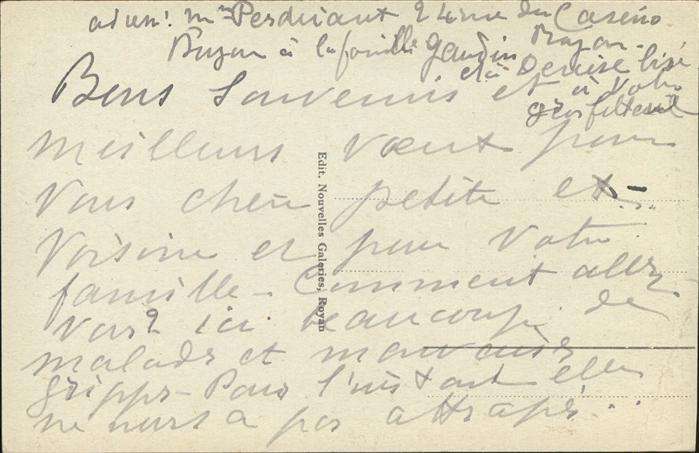 Mme Perdriant 2 4 rue du Casino
Royan à la famille Gaudin Royan.
et à Denise lise
Bons Souvenirs et à votre
gros
meilleurs vœux pour
vous chère petite et
voisine et pour votre
famille – Comment allez
vous? ici beaucoup de
malades et mauvaises
grippes – Pour l'instant elle
ne nous a pas attrapés...
Edit. Nouvelles Galeries, Royan